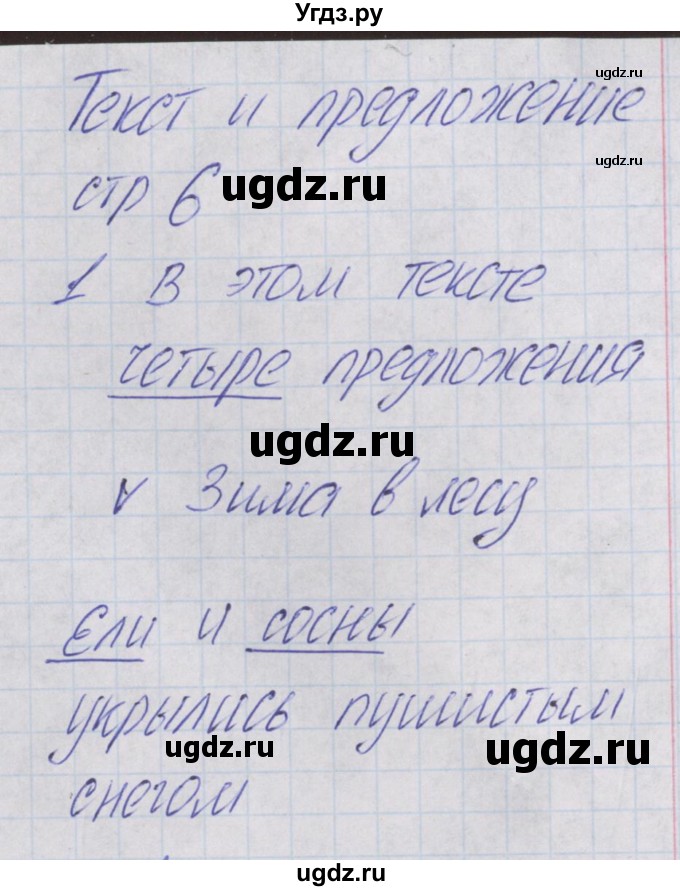 Угдз.ру
ugdz.ru
Текст и предложение
ugdz.ru
стр 6
ugdz.ru
1 В этом тексте
четыре предложения
ugdz.ru
v Зима в лесу
Ели и сосны
укрылись пушистым
ugdz.ru
ugdz.ru
снегом
ugdz.ru